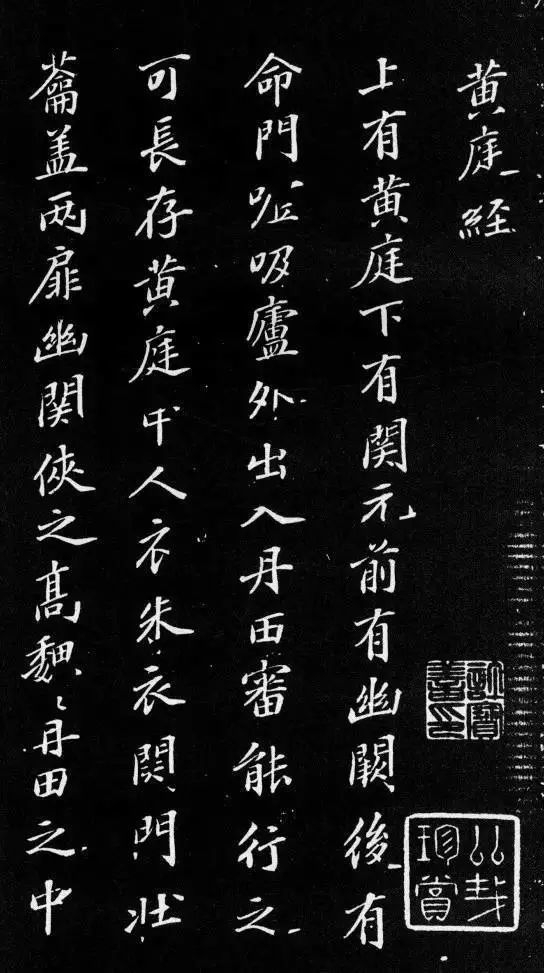 黄庭経
上有黄庭下有関元前有幽闕後有
命門吸廬外出入丹田審能行之
可長存黄庭中人衣朱衣関門壯
蘥盖两扉幽関俠之髙魏〻丹田之中
珍賞